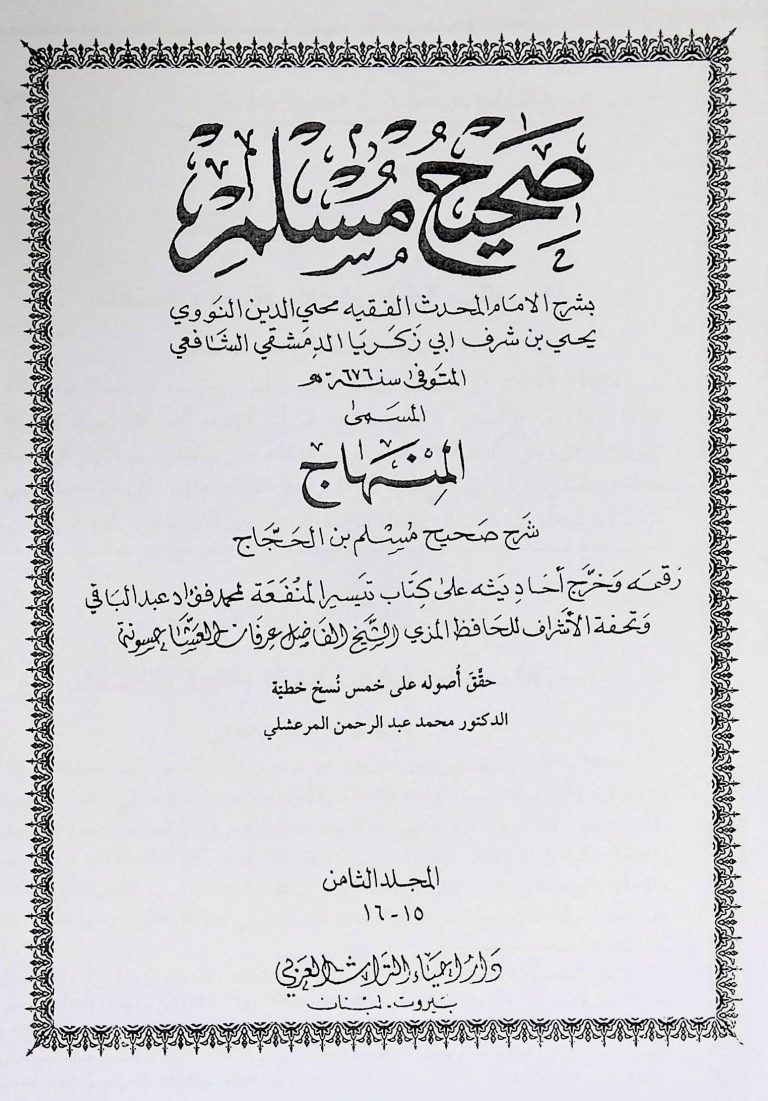 صَحِيحُ مُسْلِمْ
بشرح الامام المحدث الفقيه محيي الدين النووي
يحيى بن شرف ابي زكريا الدمشقي الشافعي
المتوفى سنة ٦٧٦ هـ
المسمى
المِنْهَاج
شَرح صَحيح مُسْلم بن الحَجّاج
رَقّمه وَخرَّج أحَاديثه على كِتَاب تيسير المنْفَعَة لمحمد فؤاد عبد الباقي
وَتحفة الأشراف للحَافظ المزي الشيخ الفاضل عرفان العشا حسونة
حقَّقَ أصوله على خمس نُسخ خطيّة
الدكتور محمد عبد الرحمن المرعشلي
المجلد الثامن
١٥-١٦
دَار احياء التراث العَربي
بَيروت. لبنان